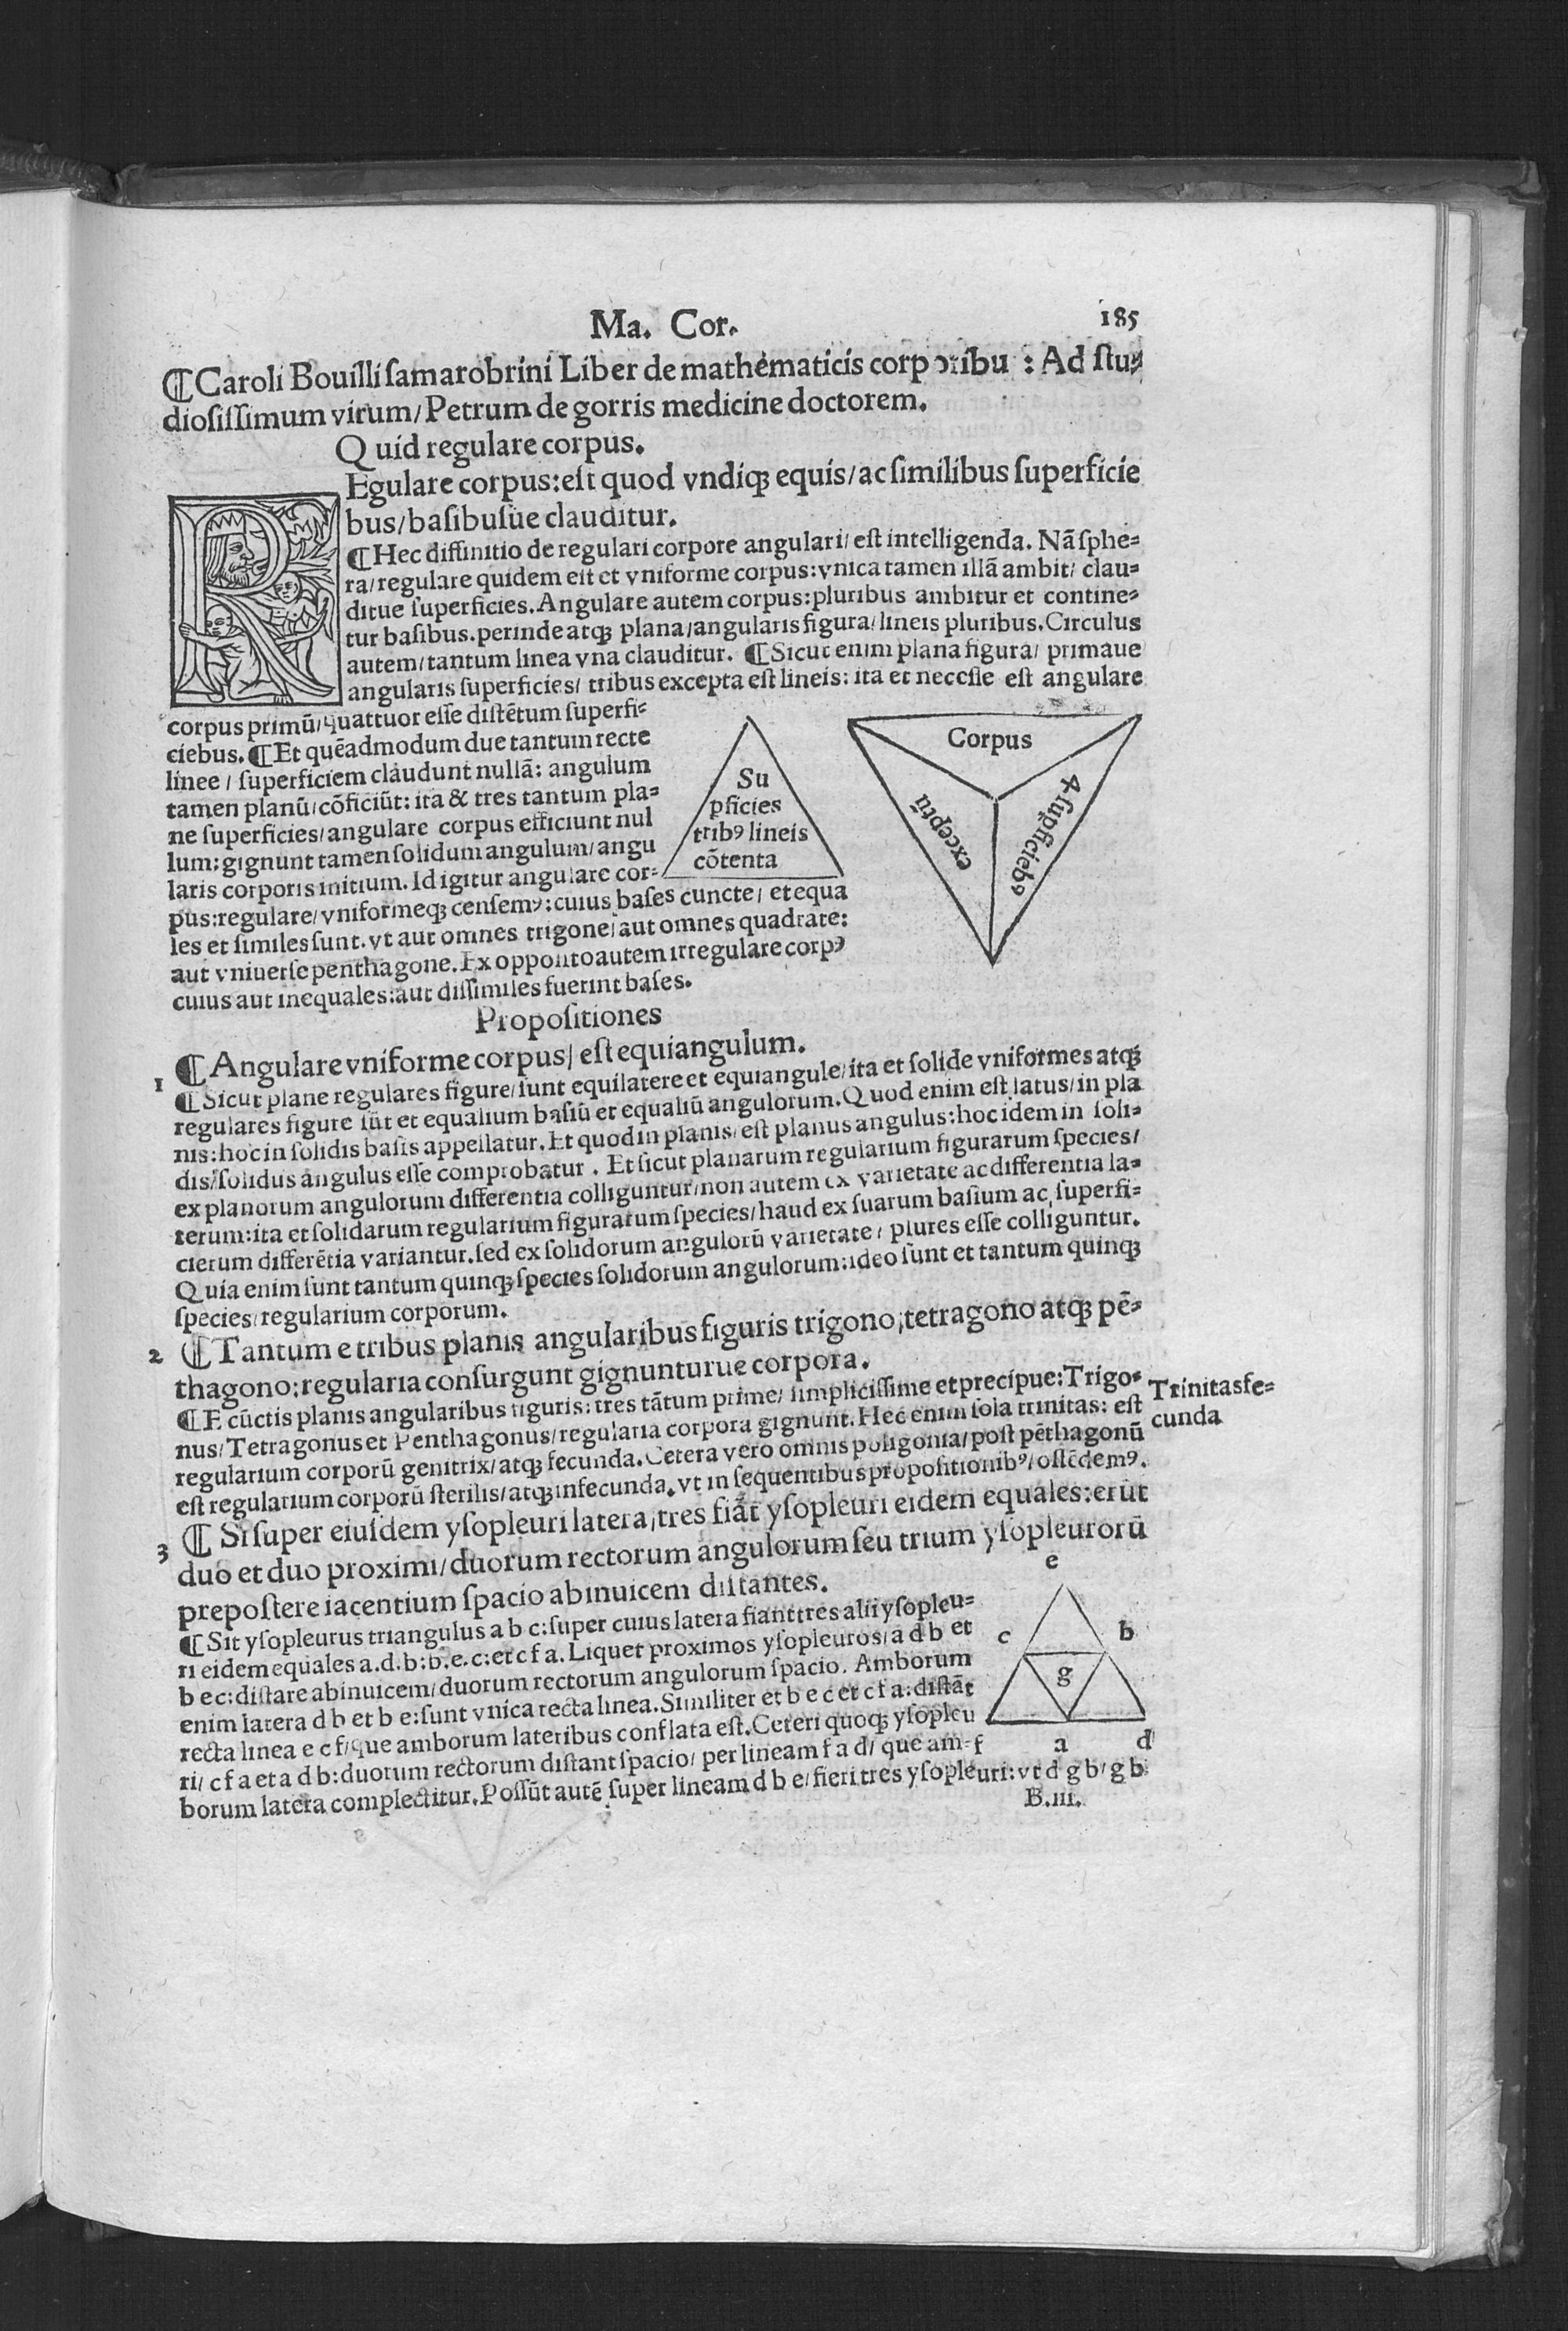 Ma. Cor.
185
¶Caroli Bouilli samarobrini Liber de mathematicis corporibu : Ad stu⸗
diosissimum virum/Petrum de gorris medicine doctorem.
Quid regulare corpus.
REgulare corpus:est quod vndiqꝫ equis/ac similibus superficie
bus/basibusue clauditur.
¶Hec diffinitio de regulari corpore angulari/est intelligenda. Nã sphe⸗
ra/regulare quidem est et vniforme corpus:vnica tamen illã ambit/ clau⸗
ditue superficies.Angulare autem corpus:pluribus ambitur et contine⸗
tur basibus.perinde atqꝫ plana/angularis figura/lineis pluribus.Circulus
autem/tantum linea vna clauditur. ¶Sicut enim plana figura/ primaue
angularis superficies/ tribus excepta est lineis: ita et necesse est angulare
corpus primũ/quattuor esse distẽtum superfi⸗
ciebus.¶Et quẽadmodum due tantum recte
linee / superficiem claudunt nullã: angulum
tamen planũ/cõficiũt: ita & tres tantum pla⸗
ne superficies/angulare corpus efficiunt nul
lum:gignunt tamen solidum angulum/angu
laris corporis initium. Id igitur angulare cor⸗
pus:regulare/vniformeqꝫ censemꝰ:cuius bases cuncte/ et equa
les et similes sunt.vt aut omnes trigone/aut omnes quadrate:
aut vniuerse penthagone.Ex opposito autem irregulare corpꝰ
cuius aut inequales:aut dissimiles fuerint bases.
Su
ꝑficies
tribꝰ lineis
cõtenta
Corpus
exceptũ
4 supficiebꝰ
Propositiones
1 ¶Angulare vniforme corpus/ est equiangulum.
¶Sicut plane regulares figure/sunt equilatere et equiangule/ita et solide vniformes atqꝫ
regulares figure sũt et equalium basiũ et equaliũ angulorum.Quod enim est latus/in pla
nis:hoc in solidis basis appellatur.Et quod in planis/est planus angulus:hoc idem in soli⸗
dis/solidus angulus esse comprobatur . Et sicut planarum regularium figurarum species/
ex planorum angulorum differentia colliguntur/non autem ex varietate ac differentia la⸗
terum:ita et solidarum regularium figurarum species/haud ex suarum basium ac superfi⸗
cierum differẽtia variantur.sed ex solidorum angulorũ varietate/ plures esse colliguntur.
Quia enim sunt tantum quinqꝫ species solidorum angulorum:ideo sunt et tantum quinqꝫ
species/regularium corporum.
2 ¶Tantum e tribus planis angularibus figuris trigono/tetragono atqꝫ pẽ⸗
thagono:regularia consurgunt gignunturue corpora.
¶E cũctis planis angularibus figuris: tres tãtum prime/ simplicissime et precipue:Trigo⸗
nus/Tetragonus et Penthagonus/regularia corpora gignunt.Hec enim sola trinitas: est
regularium corporũ genitrix/atqꝫ fecunda.Cetera vero omnis poligonia/post pẽthagonũ
est regularium corporũ sterilis/atqꝫ infecunda.vt in sequentibus propositionibꝰ/ostẽdemꝰ.
Trinitas fe⸗
cunda
3 ¶ Si super eiusdem ysopleuri latera/tres fiãt ysopleuri eidem equales:erũt
duo et duo proximi/duorum rectorum angulorum seu trium ysopleurorũ
prepostere iacentium spacio abinuicem distantes.
¶Sit ysopleurus triangulus a b c:super cuius latera fiant tres alii ysopleu⸗
ri eidem equales a.d.b:b.e.c:et c f a.Liquet proximos ysopleuros/a d b et
b e c:distare abinuicem/duorum rectorum angulorum spacio. Amborum
enim latera d b et b e:sunt vnica recta linea.Similiter et b e c et c f a:distãt
recta linea e c f/que amborum lateribus conflata est.Ceteri quoqꝫ ysopleu
ri/ c f a et a d b:duorum rectorum distant spacio/ per lineam f a d/ que am⸗
borum latera complectitur.Possũt autẽ super lineam d b e/fieri tres ysopleuri:vt d g b/g b
e
c
b
g
f
a
d
B.iii.